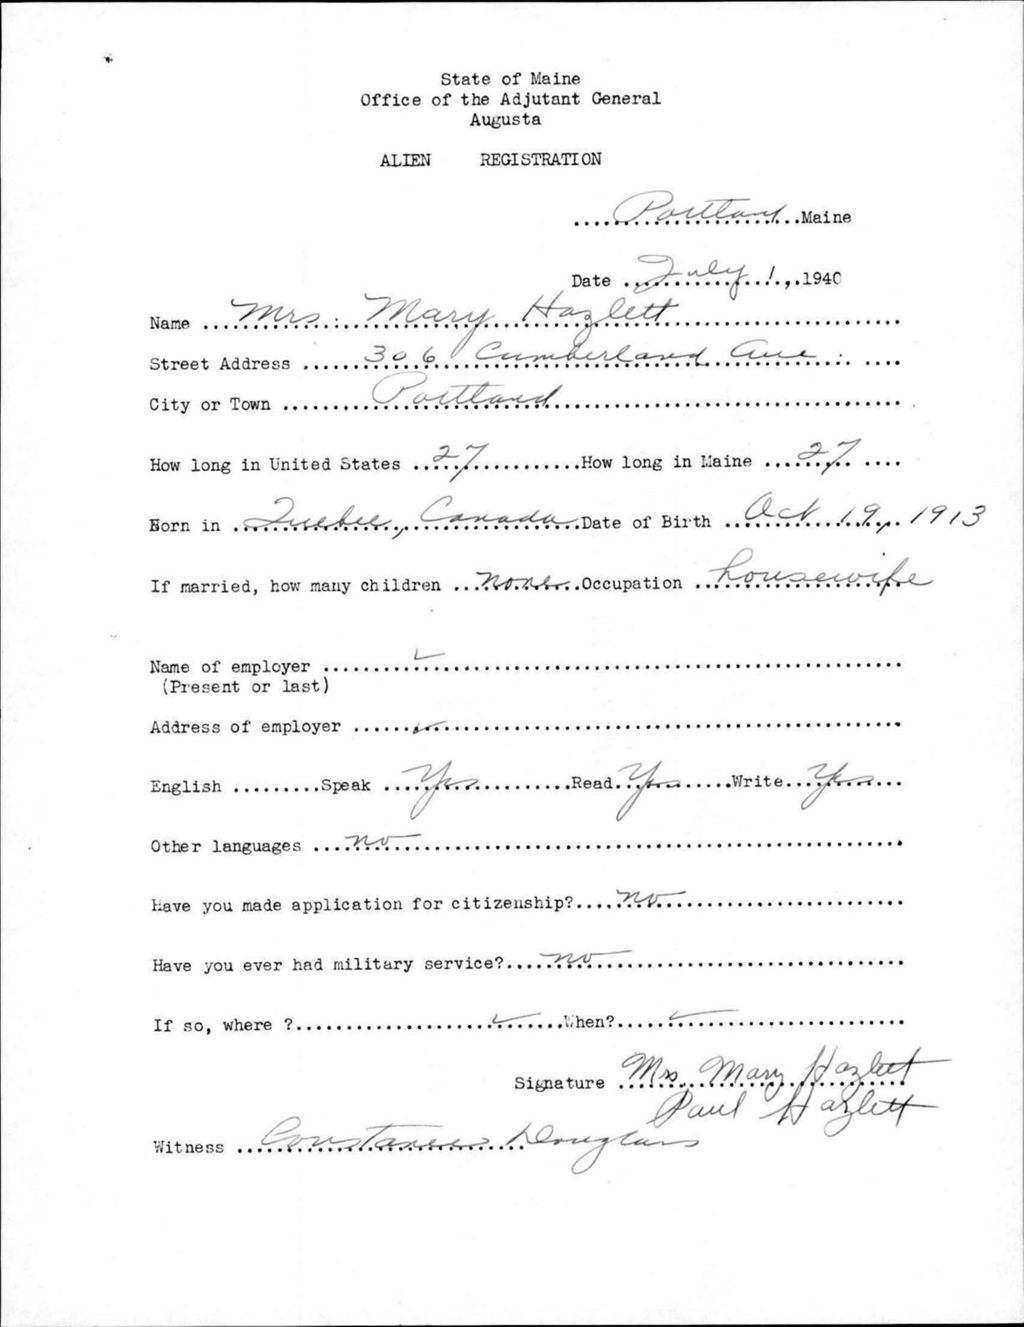 State of Maine
Office of the Adjutant General
Augusta
ALIEN REGISTRATION
Portland Maine
Date July 1, 1940
Name Mrs. Mary Hazlett
Street Address 306 Cumberland Ave.
City or Town Portland
How long in United States 27 How long in Maine 27
Born in Quebec, Canada Date of Birth Oct 19, 1913
If married, how many children none Occupation housewife
Name of employer ✓
(Present or last)
Address of employer ✓
English Speak Yes Read Yes Write Yes
Other languages no
Have you made application for citizenship? no
Have you ever had military service? no
If so, where ? ✓ When? ✓
Signature Mrs. Mary Hazlett
Paul Hazlett
Witness Constance Douglass